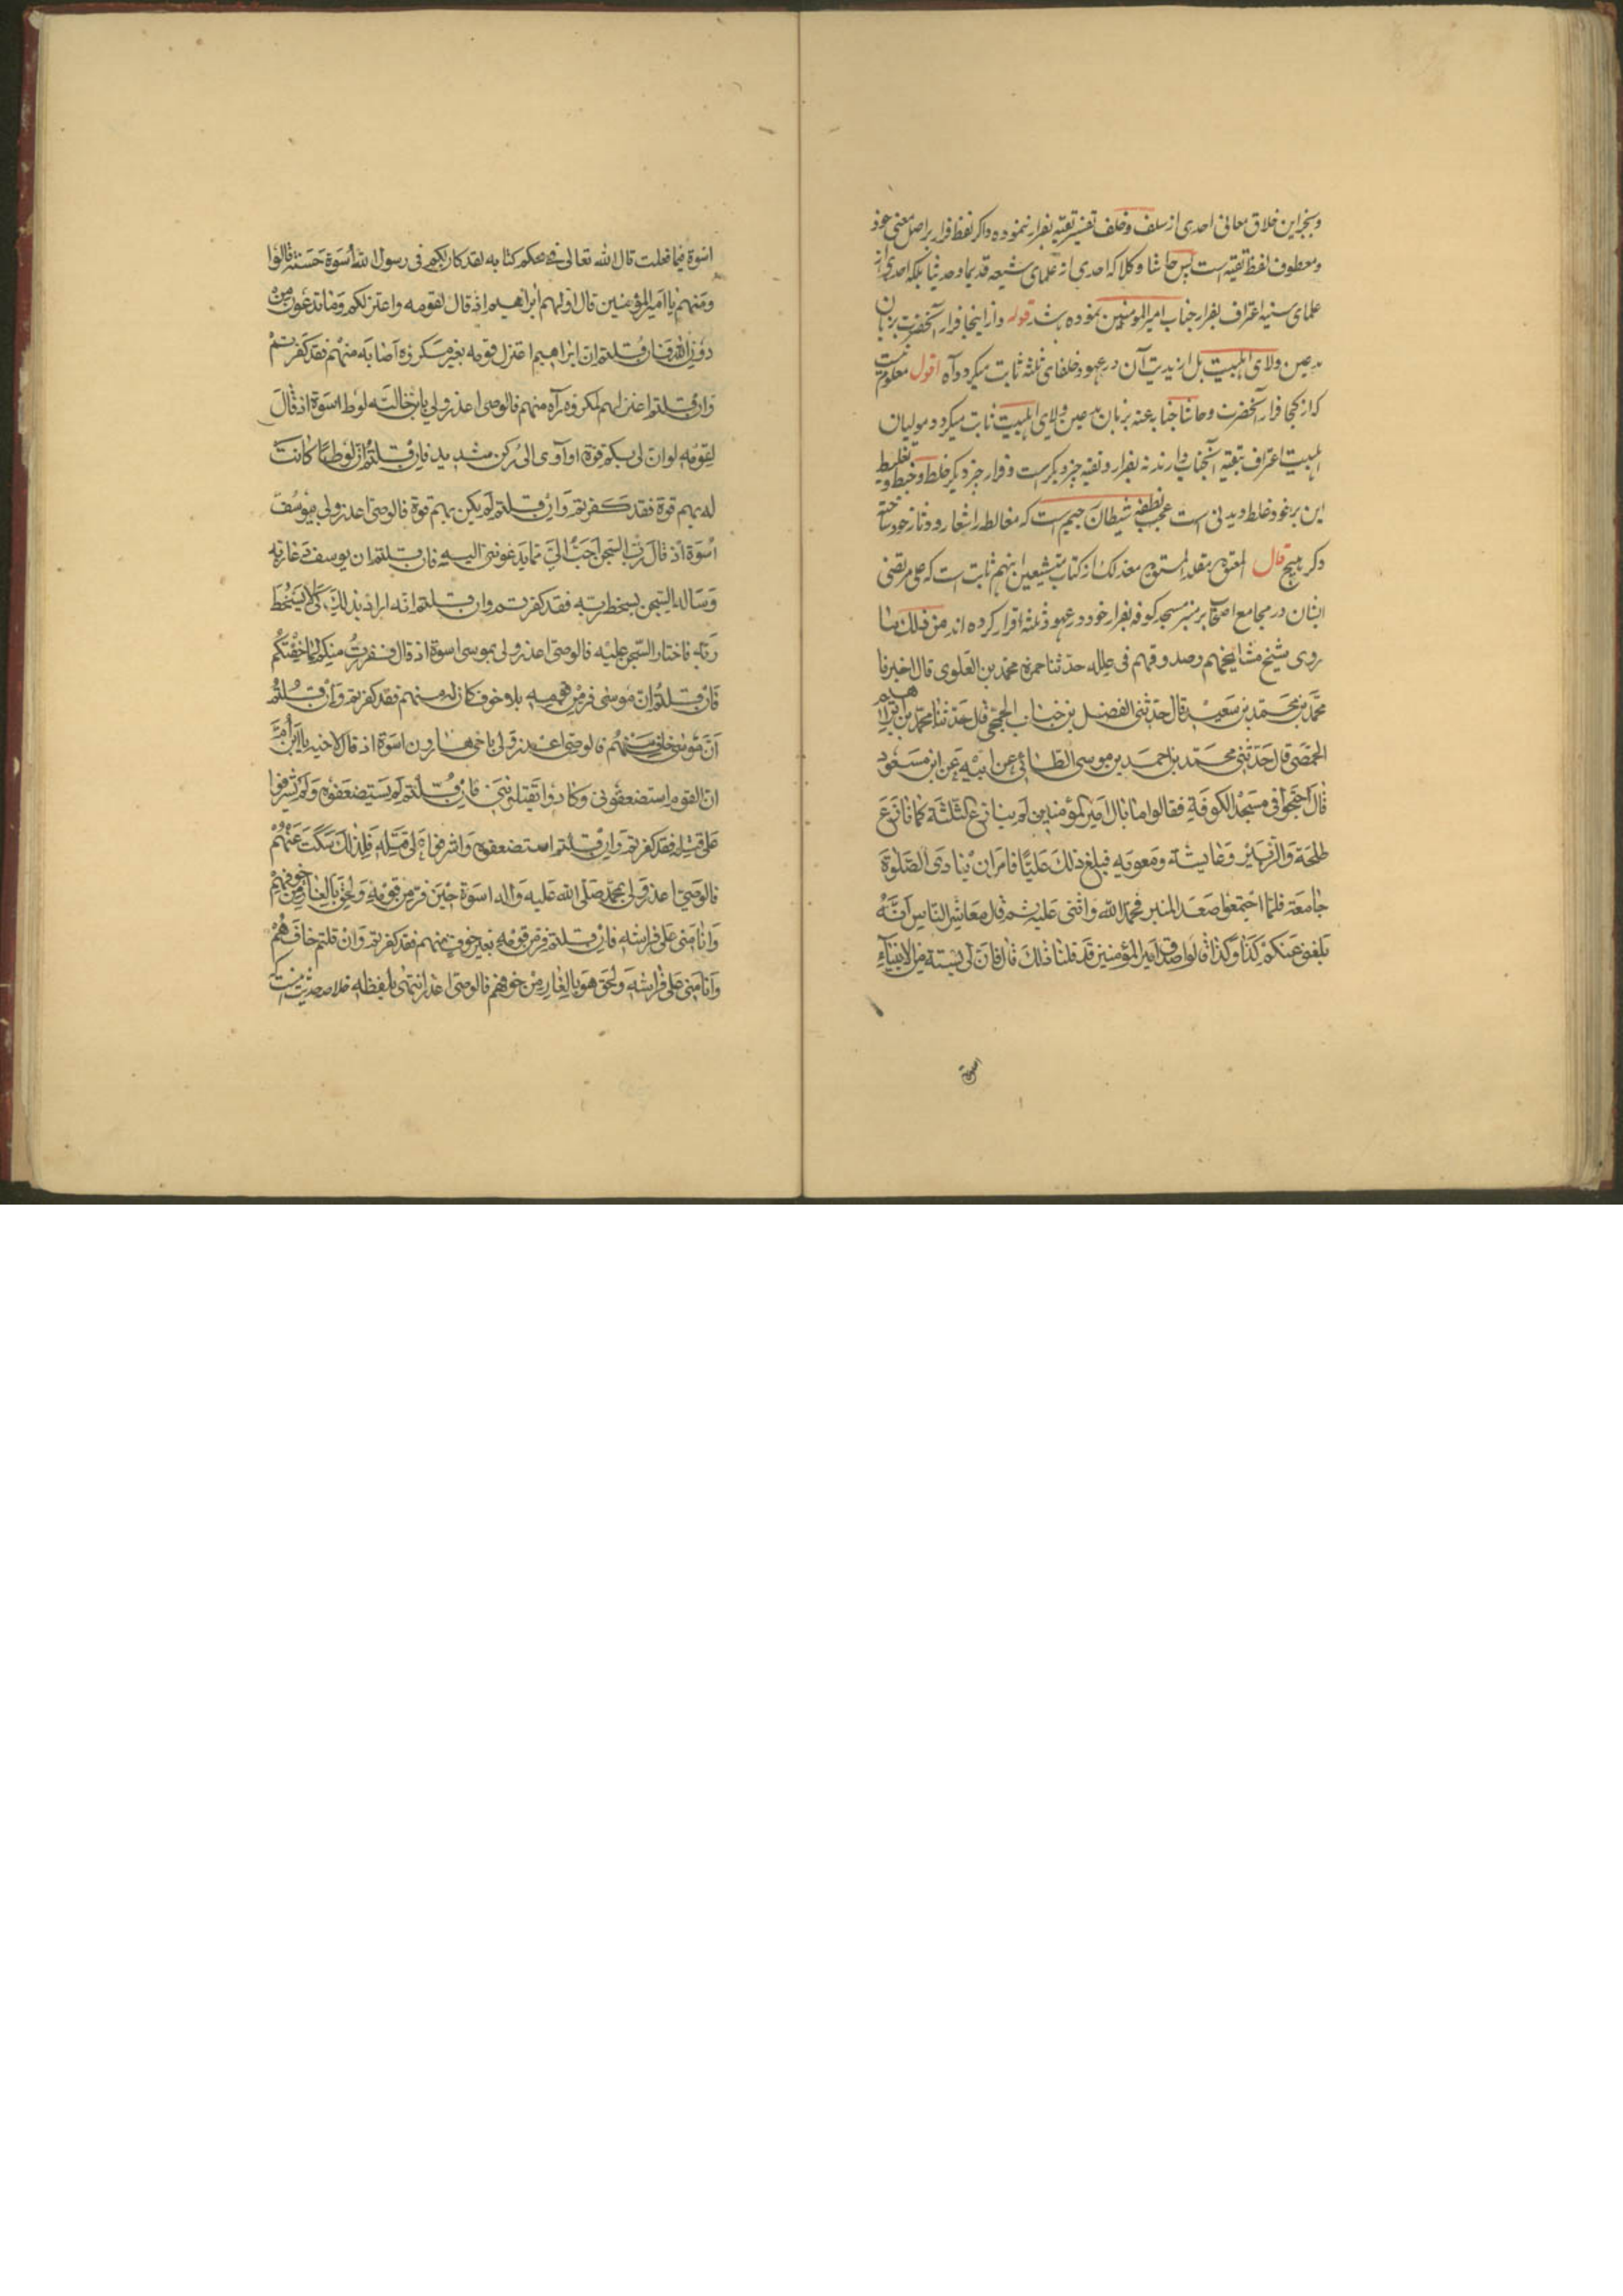 وبجز این خلاق معانی احدی از سلف و خلف تفسیر تقیّه بفرار ننموده و اکر لفظ فرار بر اصل معنی خود
و معطوف لفظ تقیه است پس حاشا و کلا که احدی از علمای شیعه قدیما و حدیثا بلکه احدی از
علمای سنیه اعتراف بفرار جناب امیر المومنین نموده باشد قوله و از اینجا فرار آنحضرت بزبان
مدعین ولای اهلبیت بل ازیدیت آن در عهود خلفای ثلثه ثابت میکردد آه اقول معلوم نیست
که از کجا فرار آنحضرت و حاشا جنابه عنه بزبان مدعین ولای اهلبیت ثابت میکردد موالیان
اهلبیت اعتراف بتقیه آنجناب دارند نه بفرار و تقیه چیز دیکر است و فرار چیز دیکر خلط و خبط و تغلیط
این برخود غلط دیدنی است عجب نطفه شیطان رجیم است که مغالطه را شعار و دثار خود ساخته
دکر هیچ قال المعتوه مقلدا لمستوه معذلک از کتاب متشیعین اینهم ثابت است که علی مرتضی
ایشان در مجامع اصحاب بر منبر مسجد کوفه بفرار خود در عهود ثلثه اقرار کرده اند من ذلک ما
روی شیخ مشایخهم وصدوقهم فی علله حدثنا حمزه محمد بن العلوی قال اخبرنا
محمد بن محمد بن سعید قال حدثنی الفضل بن خباب الجمحی قال حدثنا محمد بن ابراهیم
الحمصی قال حدثنی محمد بن احمد بن موسی الطائی عن ابیه عن ابن مسعود
قال احتجوا فی مسجد الکوفة فقالوا ما بال امیر المؤمنین لم ینازع الثلثة کما نازع
طلحة والزبیر وعایشة ومعویه فبلغ ذلک علیّا فامر ان ینادی الصلوة
جامعة فلما اجتمعوا صعد المنبر فحمد الله واثنی علیه ثم قال معاشر الناس انه
بلغنی عنکم کذا وکذا قالوا صدق امیر المؤمنین قد قلنا ذلک قال فان لی بستة من الانبیاء
اسوة
اسوة فیما فعلت قال الله تعالی فی محکم کتابه لقد کان لکم فی رسول الله اسوة حسنة قالوا
ومنهم یا امیر المؤمنین قال اولهم ابراهیم اذ قال لقومه واعتزلکم وما تدعون من
دون الله فان قلتم ان ابراهیم اعتزل قومه بغیر مکروه اصابه منهم فقد کفرتم
وان قلتم اعتزلهم لمکروه رآه منهم فالوصی اعذر ولی بابن خالته لوط اسوة اذ قال
لقومه لو ان لی بکم قوة او آوی الی رکن شدید فان قلتم ان لوطا کانت
له بهم قوة فقد کفرتم وان قلتم لم یکن بهم قوة فالوصی اعذر ولی بیوسف
اسوة اذ قال رب السجن احب الی مما یدعوننی الیه فان قلتم ان یوسف دعا ربه
وساله السجن بسخط ربه فقد کفرتم وان قلتم انه اراد بذلک لئلا یسخط
ربه فاختار السجن علیه فالوصی اعذر ولی بموسی اسوة اذ قال ففررت منکم لما خفتکم
فان قلتم ان موسی فر من قومه بلا خوف کان له منهم فقد کفرتم وان قلتم
ان موسی خاف منهم فالوصی اعذر ولی باخی هارون اسوة اذ قال لاخیه یا ابن ام
ان القوم استضعفونی وکادوا یقتلوننی فان قلتم لم یستضعفوه ولم یشرفوا
علی قتله فقد کفرتم وان قلتم استضعفوه واشرفوا علی قتله فلذلک سکت عنهم
فالوصی اعذر ولی بمحمد صلی الله علیه واله اسوة حین فر من قومه ولحق بالغار من خوفهم
وانامنی علی فراشه فان قلتم فر من قومه بغیر خوف منهم فقد کفرتم وان قلتم خافهم
وانامنی علی فراشه ولحق هو بالغار من خوفهم فالوصی اعذر انتهی بلفظه خلاصه حدیث اینست که